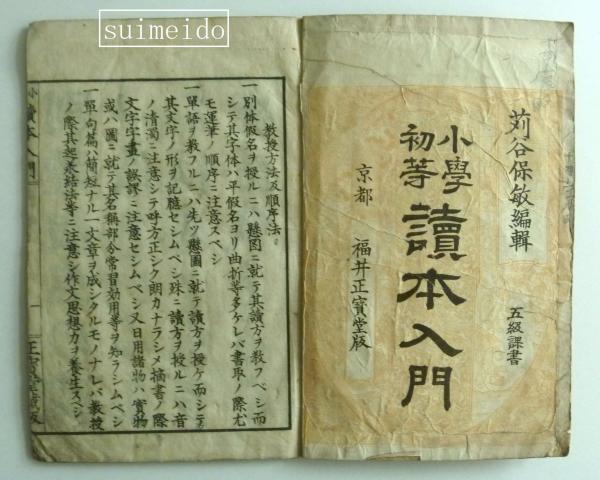 suimeido
苅谷保敏編輯
小學
初等
讀本入門
五級課書
京都 福井正寳堂版
教授方法及順序法
一別体假名ヲ授ルニハ懸圖ニ就テ其讀方ヲ教フベシ而
シテ其字体ハ平假名ヨリ曲折等多ケレバ書取ノ際尤
モ運筆ノ順序ニ注意スベシ
一單語ヲ教フルニハ先ツ懸圖ニ就テ讀方ヲ授ケ而シテ
其文字ノ形ヲ記臆セシムベシ殊ニ讀方ヲ授ルニハ音
ノ清濁ニ注意シテ呼方正シク朗カナラシメ摘書ノ際
文字字畫ノ誤謬ニ注意セシムベシ又日用諸物ハ實物
或ハ圖ニ就テ其名稱部分常習効用等ヲ知ラシムベシ
一單句篇ハ簡短ナル一文章ヲ成シタルモノナレバ教授
ノ際其起承結法等ニ注意シ作文思想力ヲ養生スベシ
小 讀本入門
一
正寳堂藏版